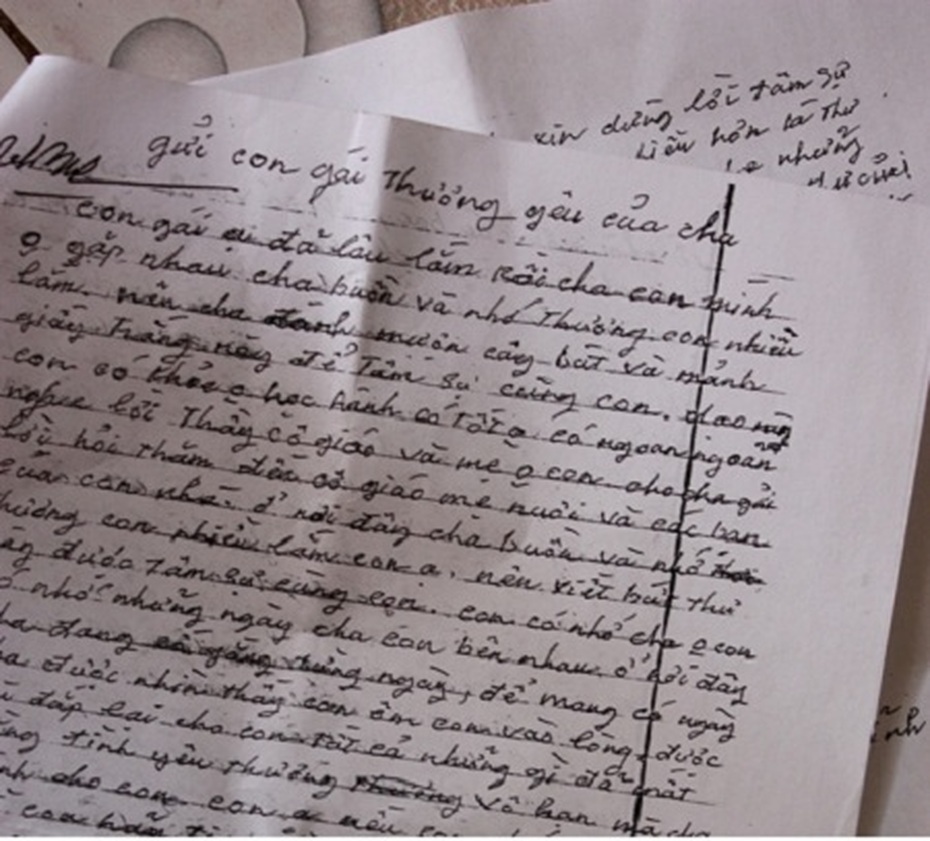 xin dừng lời tâm sự
hơn lá thư
những
gửi con gái thương yêu của cha
con gái ạ đã lâu lắm rồi cha con mình
gặp nhau cha buồn và nhớ thương con nhiều
lắm. nên cha mượn cây bút và mảnh
giấy trắng này để Tâm sự cùng con. dạo này
con có khỏe o học hành có tốt o có ngoan ngoãn
nghe lời Thầy cô giáo và mẹ o con cho cha gửi
lời hỏi thăm đến cô giáo mẹ nuôi và các bạn
của con nhé. ở nơi đây cha buồn và nhớ
thương con nhiều lắm con ạ, nên viết bức thư
được Tâm sự cùng con. con có nhớ cha o con
nhớ những ngày cha con bên nhau. ở nơi đây
đang cố gắng từng ngày, để mong có ngày
được nhìn thấy con ôm con vào lòng. được
đắp lại cho con tất cả những gì đã mất
tình yêu thương vô hạn mà cha
cho con con ạ nếu